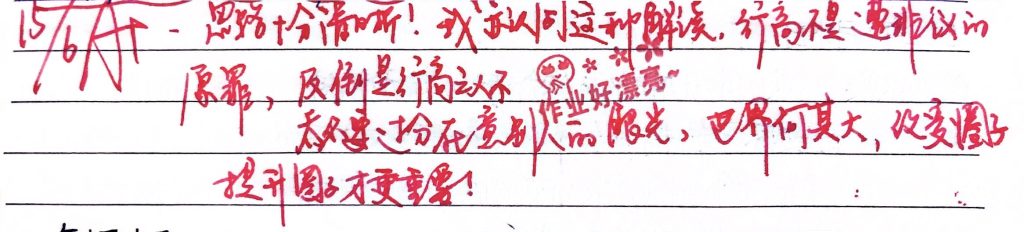 15/6 A+ 思路十分清晰！我亦认同这种解读，行高不是遭非议的
原罪，反倒是行高之人不
作业好漂亮~
太必要过分在意别人的眼光，世界何其大，改变圈子
提升圈子才更重要！